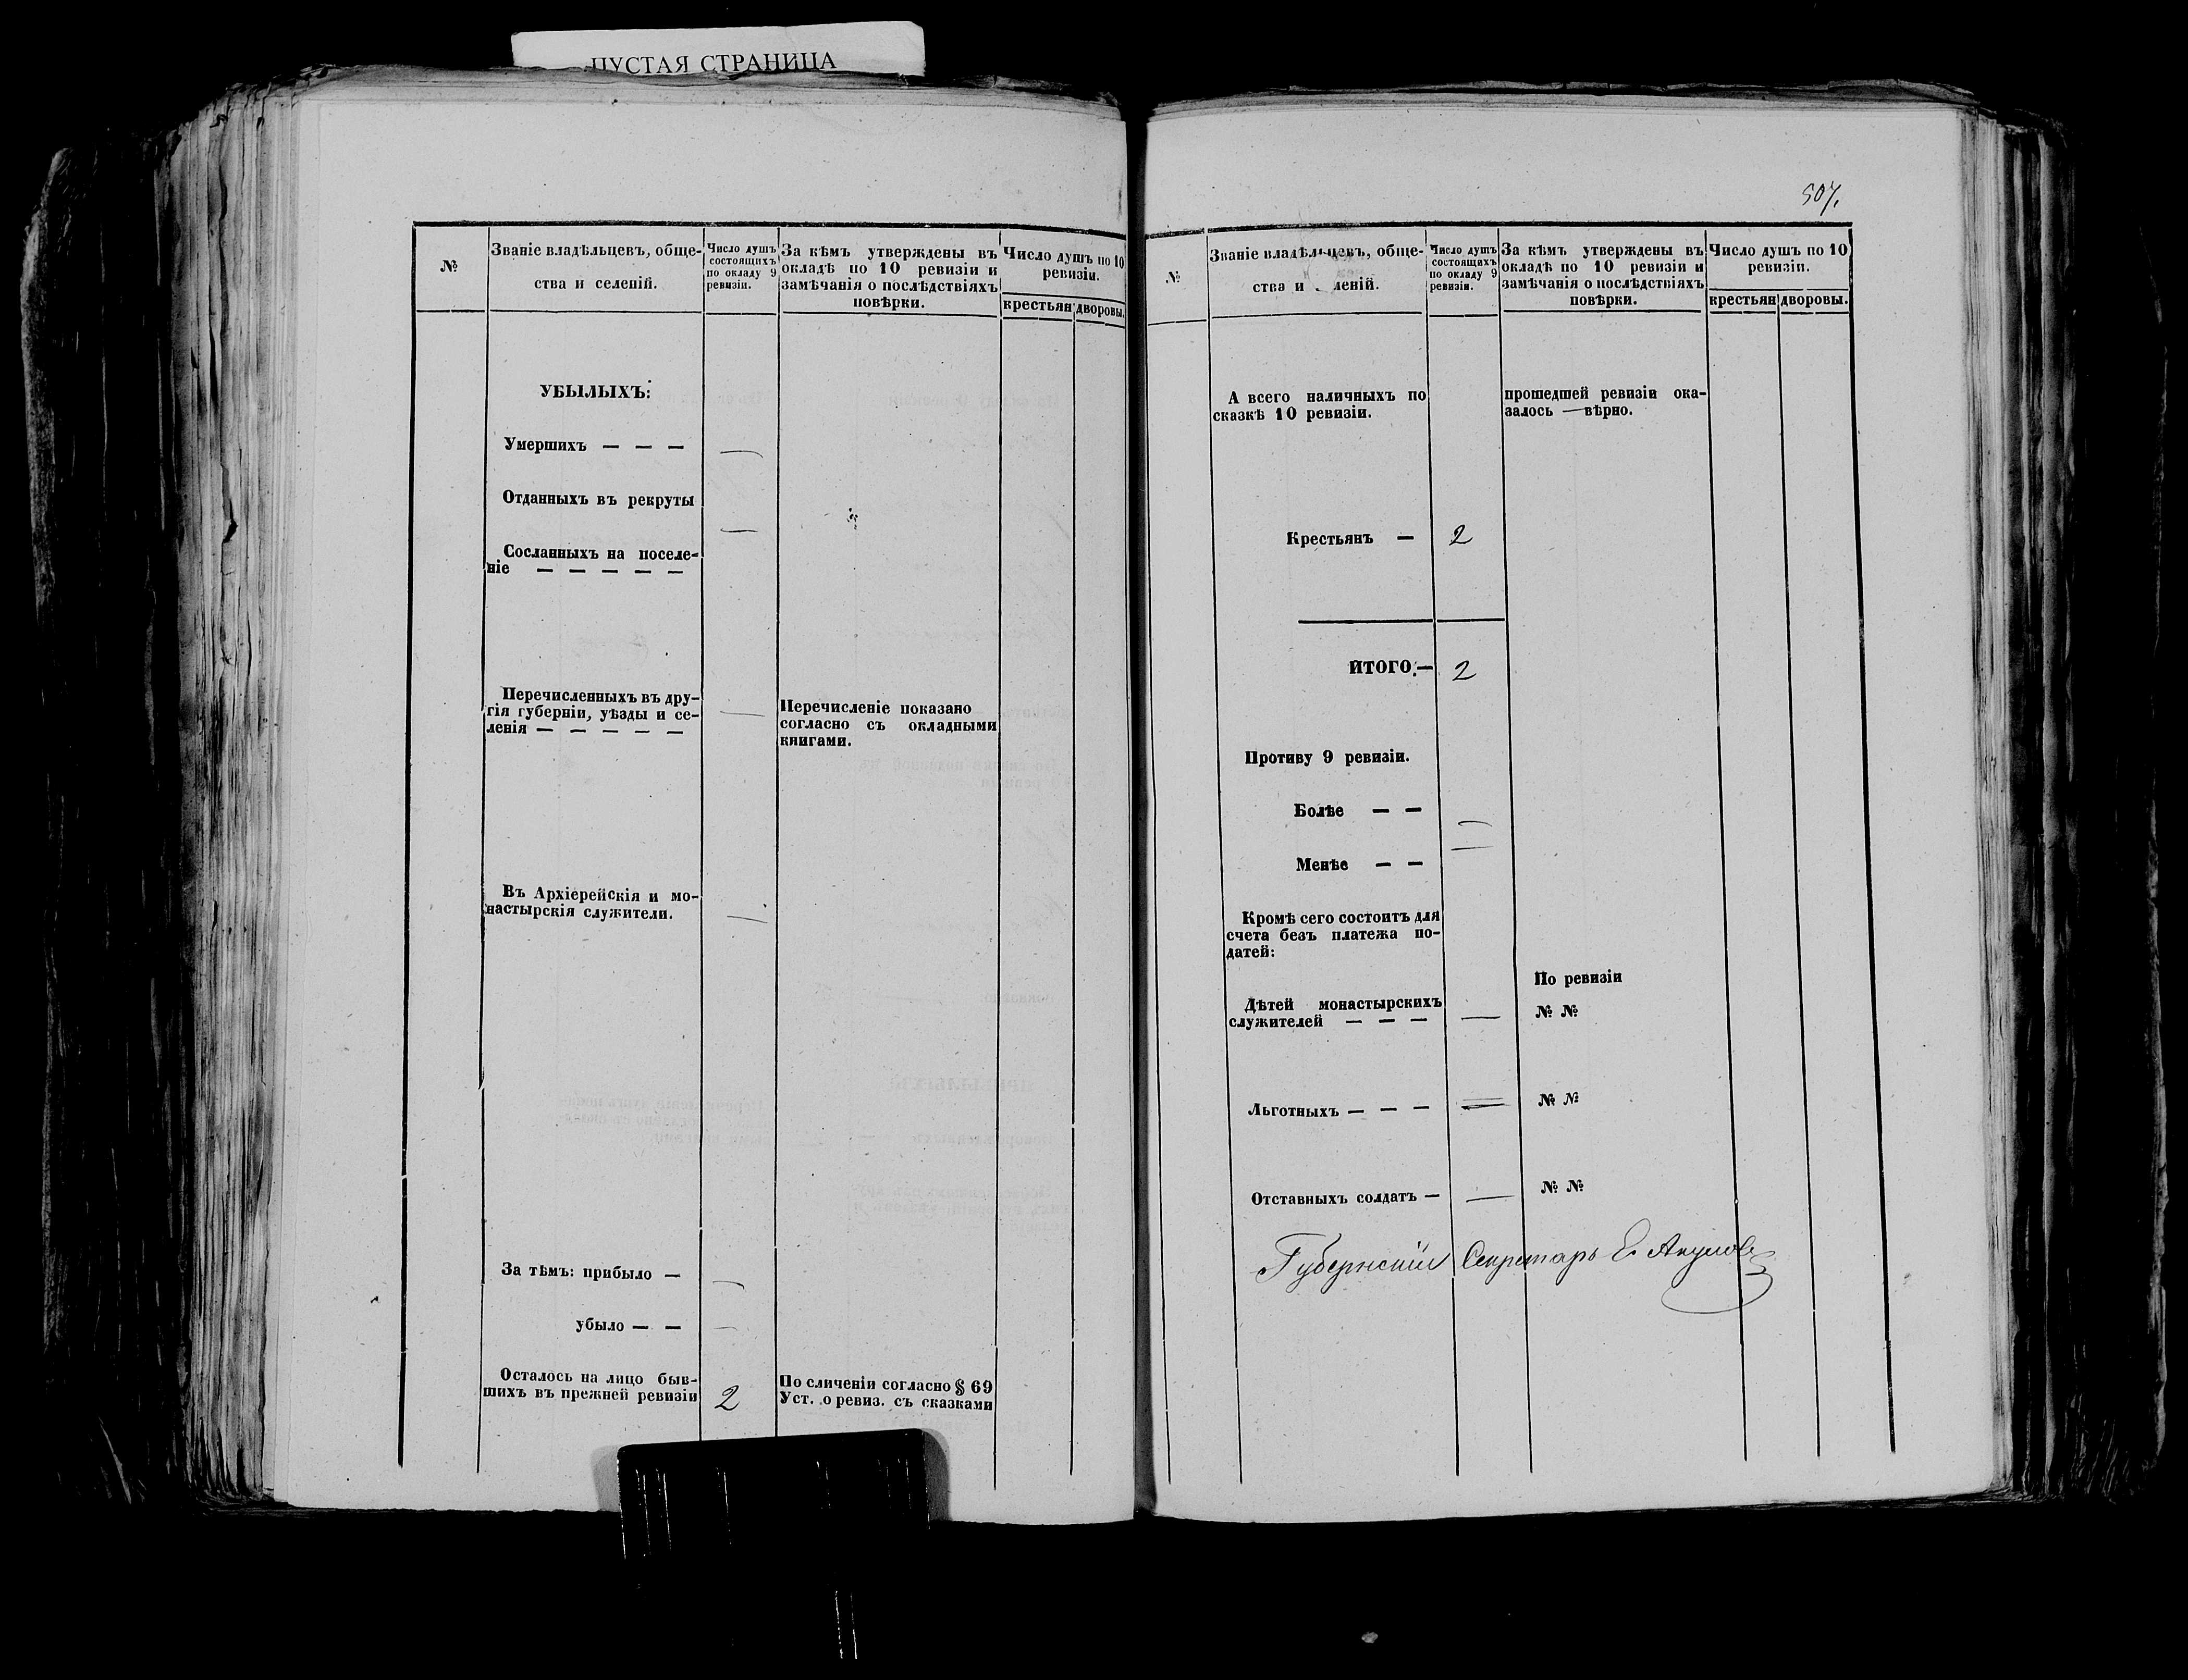 ПУСТАЯ СТРАНИЦА
№
Званіе владѣльцевъ, обще-
ства и селеній.
Число душъ
состоящихъ
по окладу 9
ревизіи.
За кѣмъ утверждены въ
окладѣ по 10 ревизіи и
замѣчанія о послѣдствіяхъ
повѣрки.
Число душъ по 10
ревизіи.
крестьян дворовы.
УБЫЛЫХЪ:
Умершихъ — — — —
Отданныхъ въ рекруты
—
Сосланныхъ на поселе-
ніе — — — — —
Перечисленныхъ въ дру-
гія губерніи, уѣзды и се-
ленія — — — — —
—
Перечисленіе показано
согласно съ окладными
книгами.
Въ Архіерейскія и мо-
настырскія служители. —
За тѣмъ: прибыло — —
убыло — — —
Осталось на лицо быв-
шихъ въ прежней ревизіи 2
По сличеніи согласно § 69
Уст. о ревиз. съ сказками
507.
№
Званіе владѣльцевъ, обще-
ства и леній.
Число душъ
состоящихъ
по окладу 9
ревизіи.
За кѣмъ утверждены въ
окладѣ по 10 ревизіи и
замѣчанія о послѣдствіяхъ
повѣрки.
Число душъ по 10
ревизіи.
крестьян дворовы.
А всего наличныхъ по
сказкѣ 10 ревизіи.
прошедшей ревизіи ока-
залось — вѣрно.
Крестьянъ — 2
ИТОГО. — 2
Противу 9 ревизіи.
Болѣе — — —
Менѣе — — —
Кромѣ сего состоитъ для
счета безъ платежа по-
датей:
По ревизіи
Дѣтей монастырскихъ
служителей — — — — № №
Льготныхъ — — — — № №
Отставныхъ солдатъ — — № №
Губернскій Секретарь Е. Акуловъ